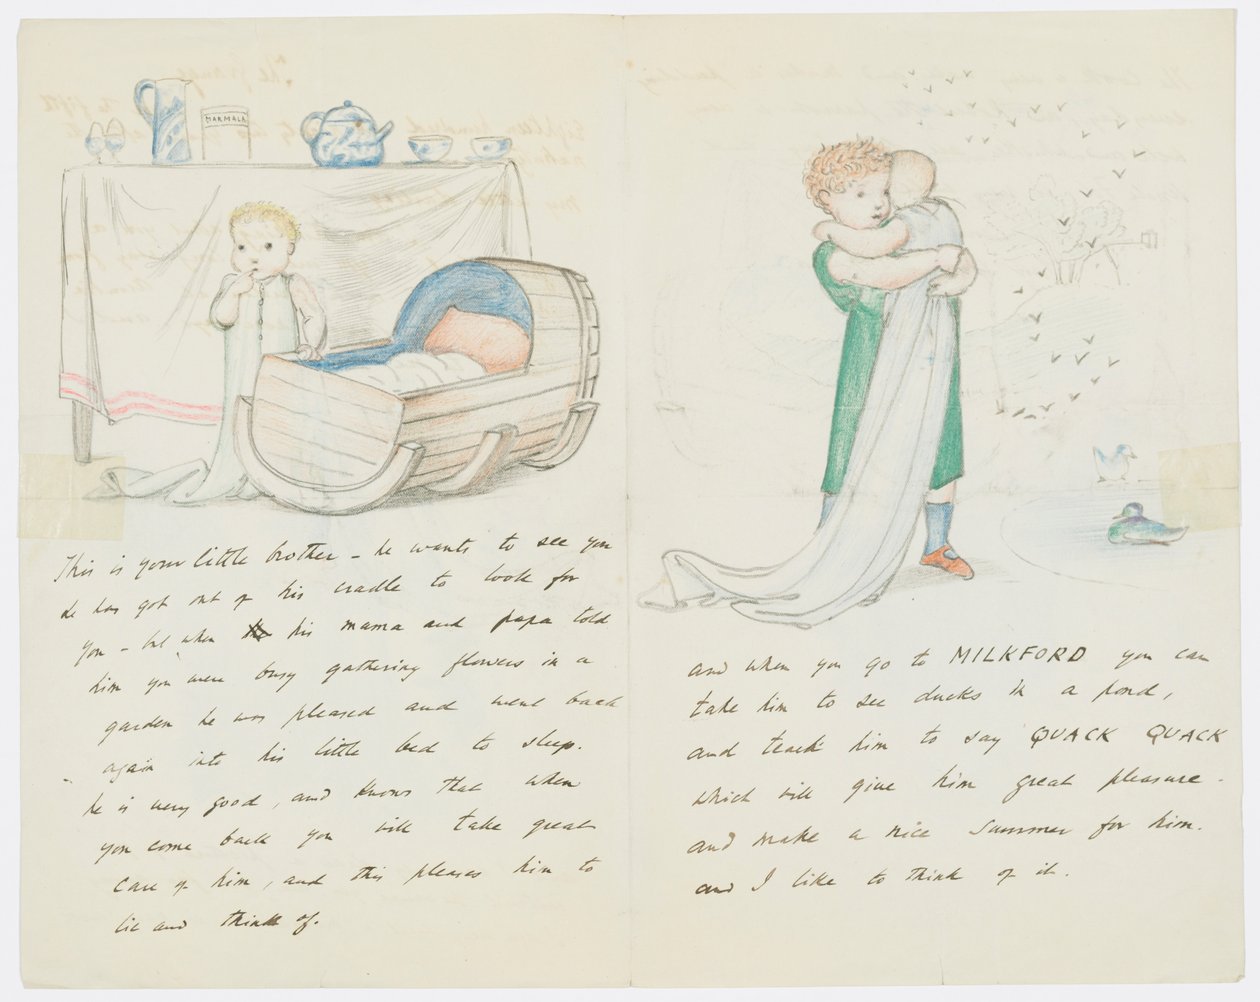 MARMALA
This is your little brother – he wants to see you
he has got out of his cradle to look for
you – but when his mama and papa told
him you were busy gathering flowers in a
garden he was pleased and went back
again into his little bed to sleep.
he is very good, and knows that when
you come back you will take great
care of him, and this pleases him to
lie and think of.
and when you go to MILKFORD you can
take him to see ducks in a pond,
and teach him to say QUACK QUACK
which will give him great pleasure.
and make a nice summer for him.
and I like to think of it.